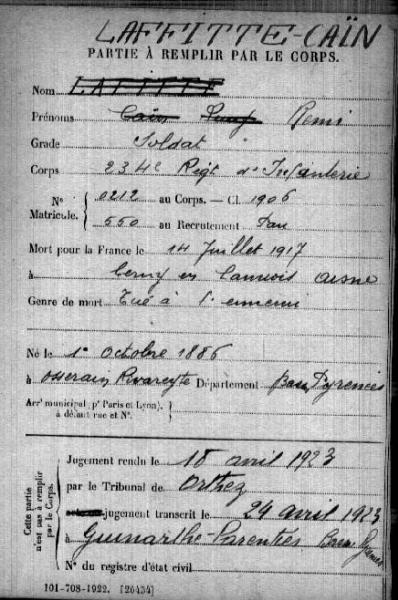 LAFFITTE-CAÏN
PARTIE À REMPLIR PAR LE CORPS.
Nom LAFFITTE
Prénoms Caïn Remi
Grade Soldat
Corps 234e Régt d'Infanterie
Nº 0212 au Corps. — Cl. 1906
Matricule. 550 au Recrutement Pau
Mort pour la France le 14 Juillet 1917
à Cerny en Lannois Aisne
Genre de mort Tué à l'ennemi
Né le 1er Octobre 1886
à Osserain Rivareyte Département Bses Pyrénées
Arrt municipal (pr Paris et Lyon),
à défaut rue et Nº.
Cette partie
n'est pas à remplir
par le Corps.
Jugement rendu le 18 avril 1923
par le Tribunal de Orthez
jugement transcrit le 24 avril 1923
à Guinarthe-Parenties Bses Pyrénées
Nº du registre d'état civil
101-708-1922. [26434]